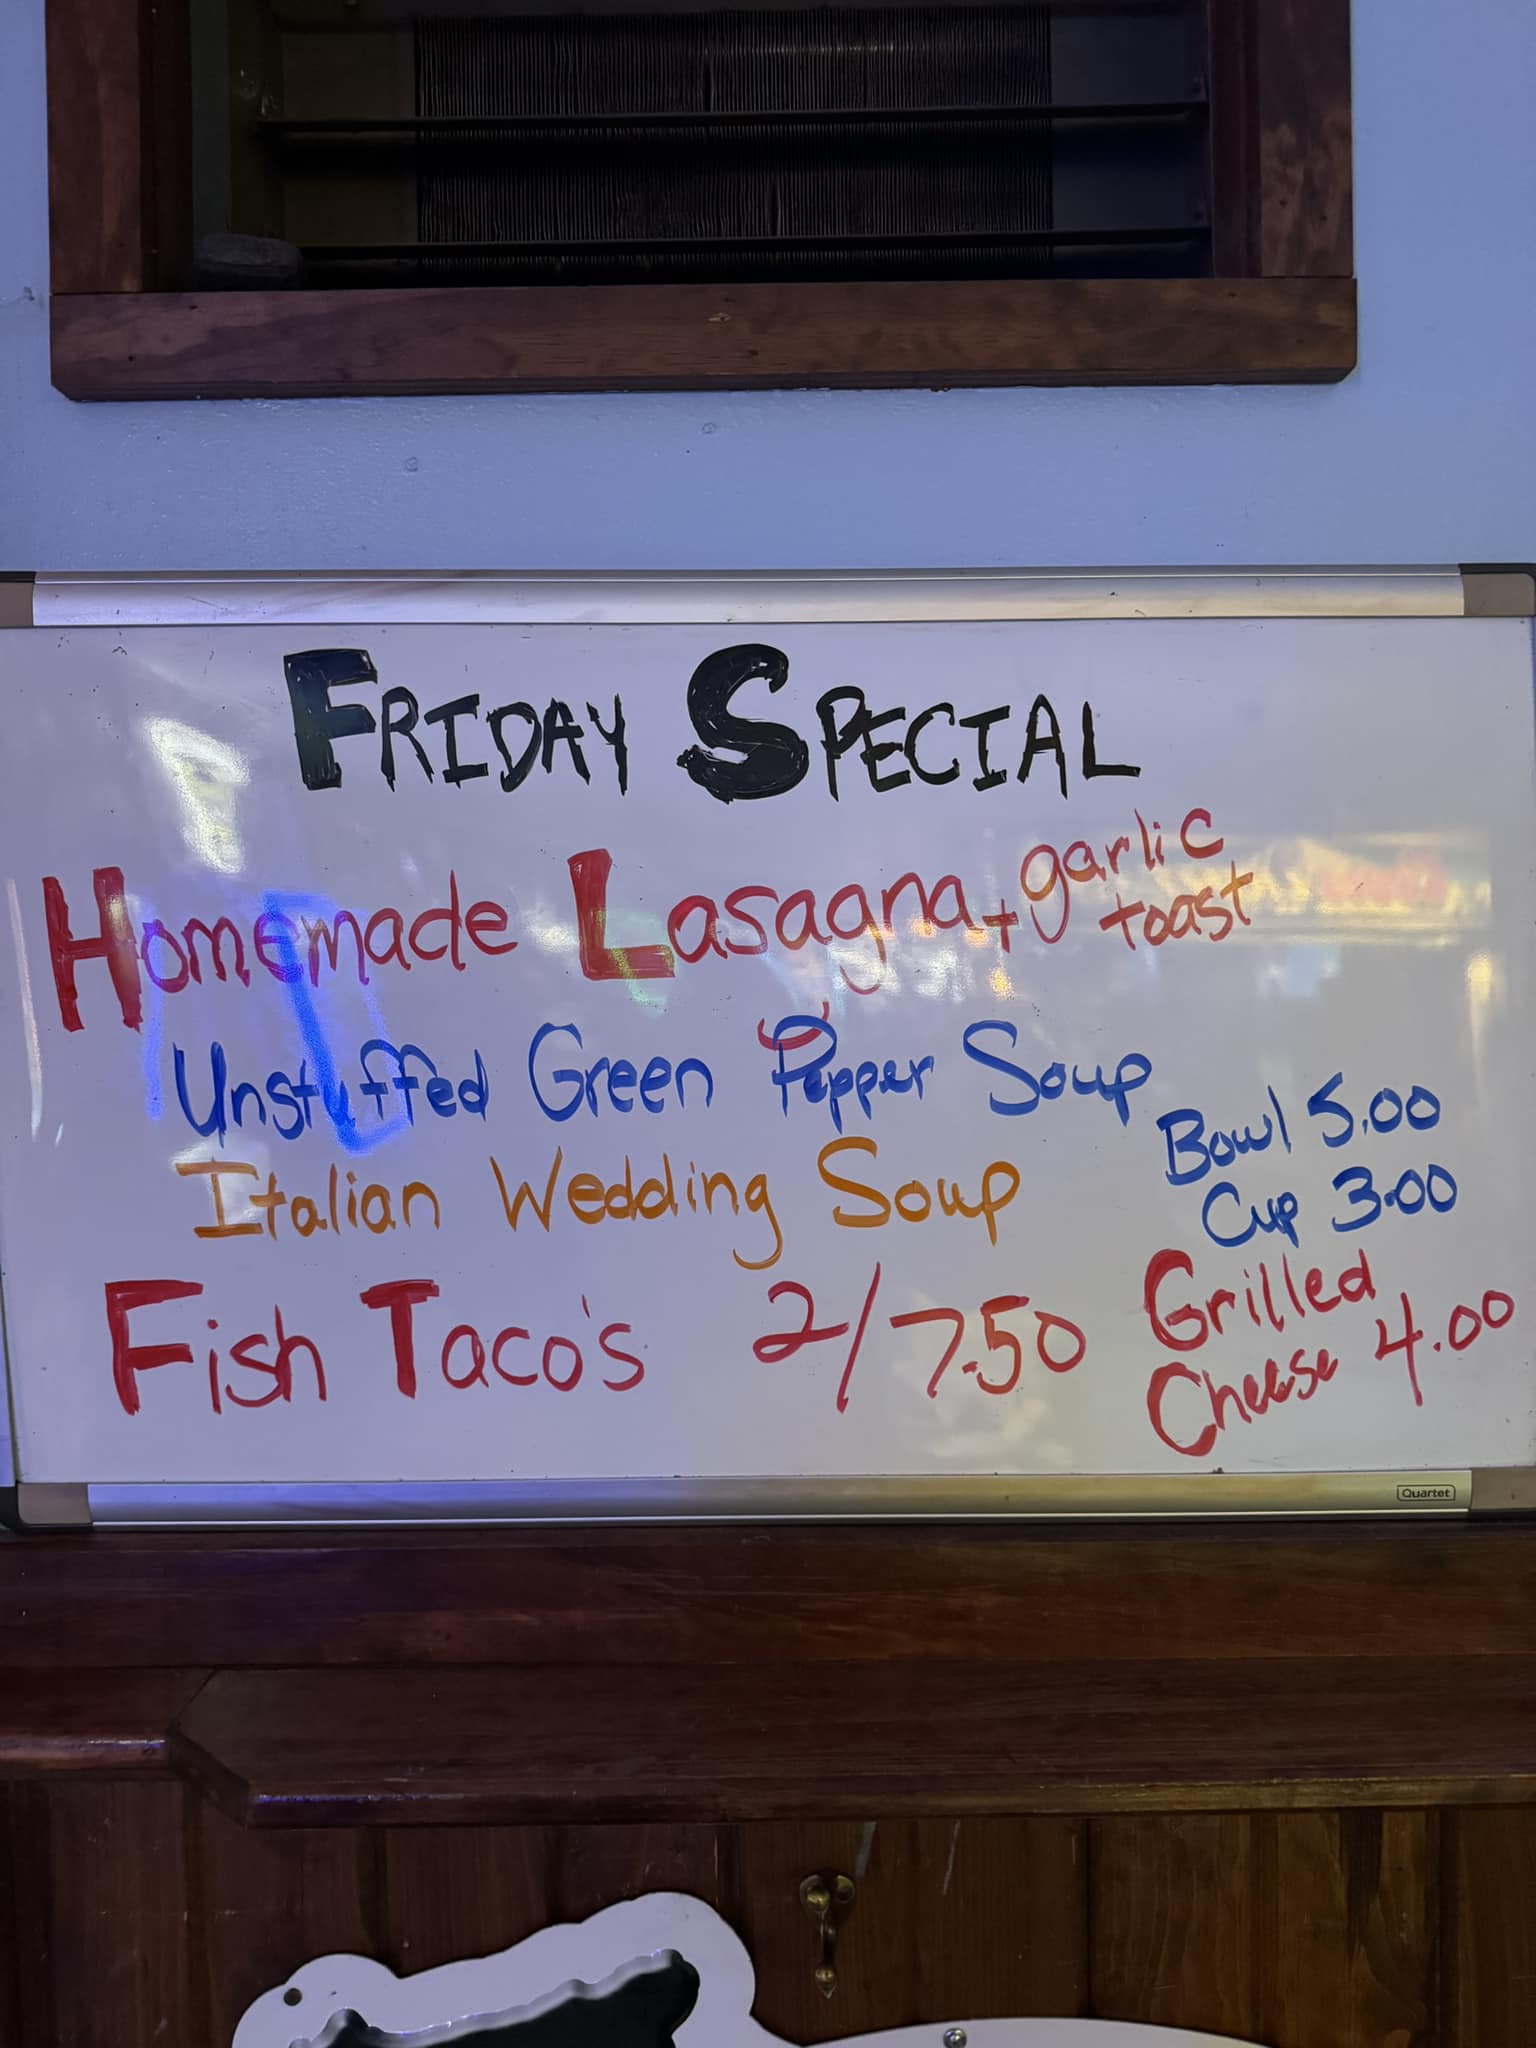 FRIDAY SPECIAL
Homemade Lasagna + garlic toast
Unstuffed Green Pepper Soup
Italian Wedding Soup
Bowl 5.00
Cup 3.00
Fish Taco's 2/7.50
Grilled
Cheese 4.00
Quartet